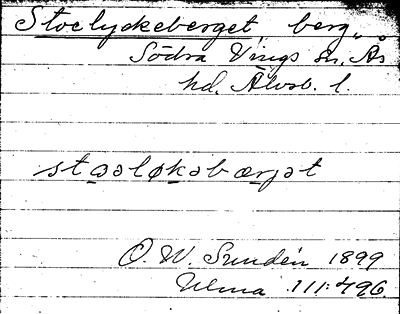 Stoelyckeberget, berg,
Södra Vings sn, Ås
hd. Älvsb. l.
staəløkəbærjət
O. W. Sundén 1899
Ulma 111:496.